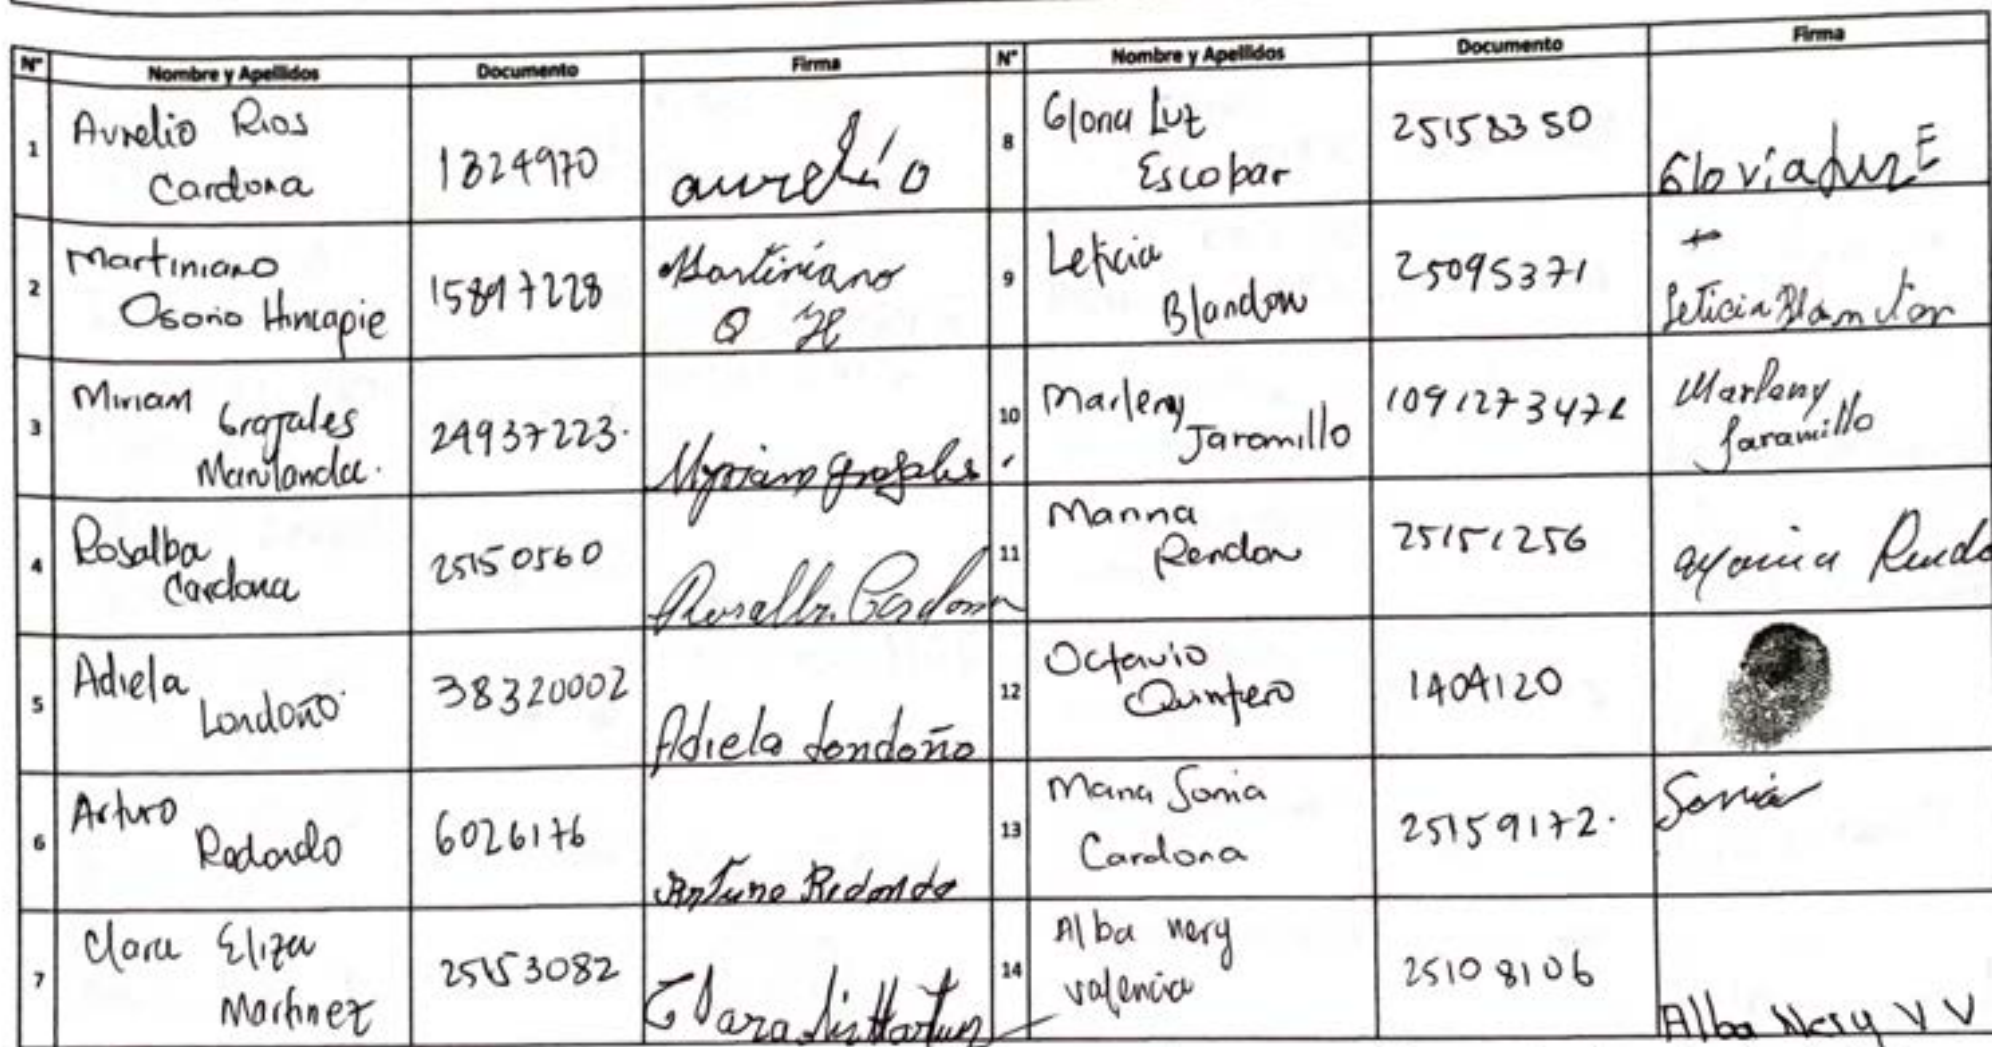 N° Nombre y Apellidos Documento Firma N° Nombre y Apellidos Documento Firma
1 Aurelio Rios
Cardona
1324970
aurelio
8 Gloria Luz
Escobar
25158350
Gloria Luz E
2 Martiniano
Osorio Hincapie
15897228
Martiniano
O H
9 Leticia
Blandon
25095371
Leticia Blandon
3 Miriam
Grajales
Marulanda.
24937223.
Myriam Grajales
10 Marleny
Jaramillo
Marleny
Jaramillo
4 Rosalba
Cardona
25150560
Rosalba Cardona
11 Marina
Rendon
25151256
Marina Rendo
5 Adiela
Londoño
38320002
Adiela Londoño
12 Octavio
Quintero
1404120
6 Arturo
Redondo
6026176
Arturo Redondo
13 Maria Sonia
Cardona
25159172.
Sonia
7 Clara Eliza
Martinez
25153082
Clara
14 Alba nery
valencia
25108106
Alba Nery V V